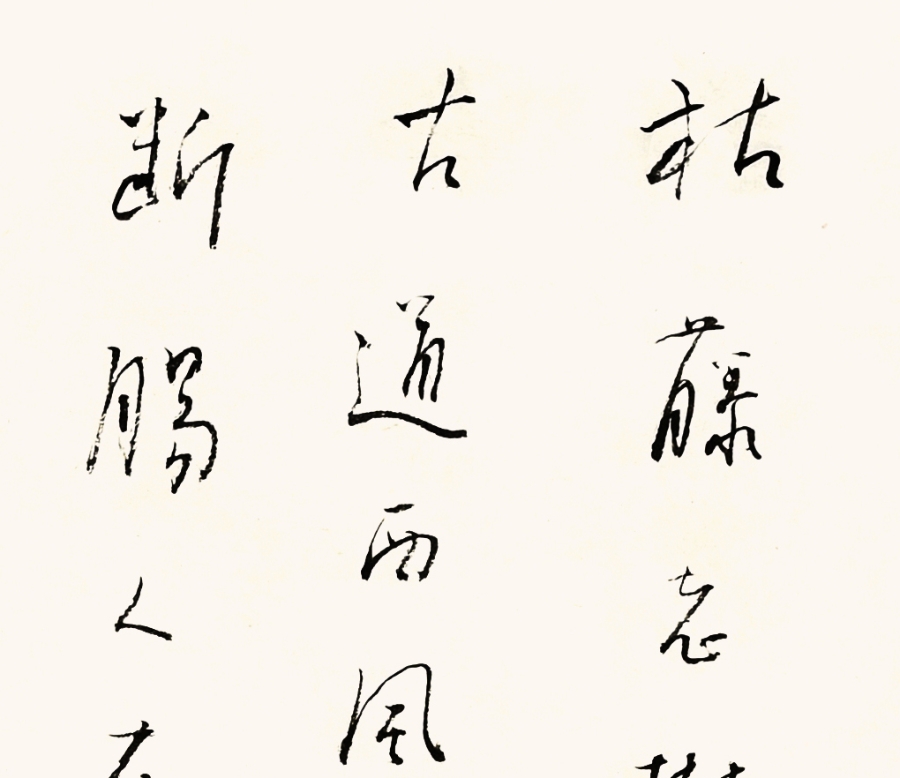 枯藤老樹
古道西風
斷腸人在